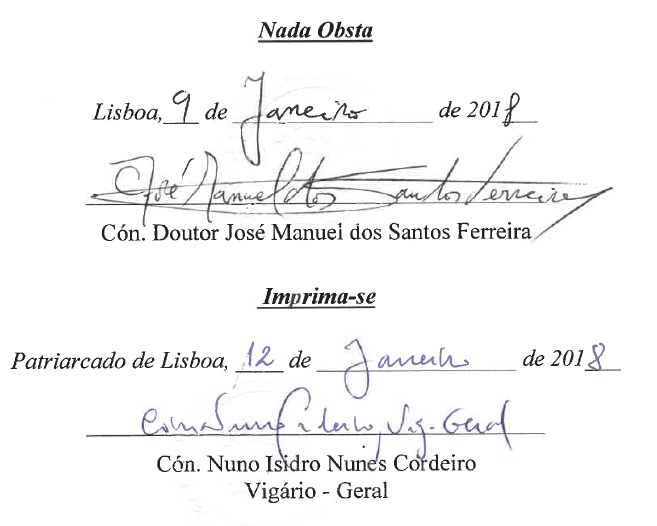 Nada Obsta
Lisboa, 9 de Janeiro de 2018
José Manuel dos Santos Ferreira
Cón. Doutor José Manuel dos Santos Ferreira
Imprima-se
Patriarcado de Lisboa, 12 de Janeiro de 2018
Vig. Geral
Cón. Nuno Isidro Nunes Cordeiro
Vigário - Geral